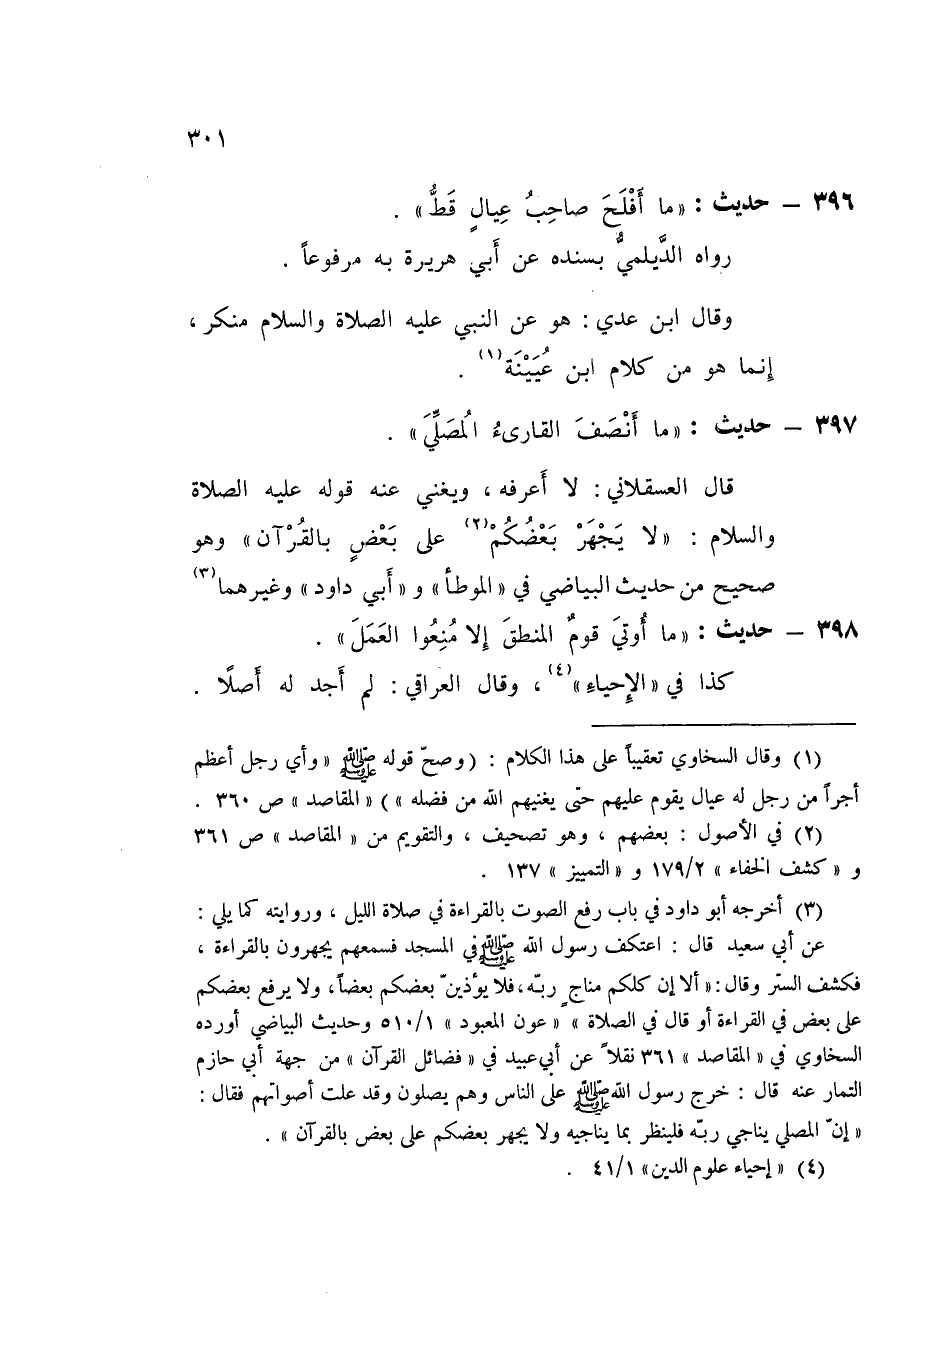 ٣٠١
٣٩٦ – حديث : «ما أَفْلَحَ صاحِبُ عِيالٍ قَطُّ» .
رواه الدَّيلميُّ بسنده عن أَبي هريرة به مرفوعاً .
وقال ابن عدي : هو عن النبي عليه الصلاة والسلام منكر ،
إِنما هو من كلام ابن عُيَيْنَة(١) .
٣٩٧ – حديث : «ما أَنْصَفَ القارىءُ المُصَلِّيَ» .
قال العسقلاني : لا أَعرفه ، ويغني عنه قوله عليه الصلاة
والسلام : «لا يَجْهَرْ بَعْضُكُمْ(٢) على بَعْضٍ بالقُرْآن» وهو
صحيح من حديث البياضي في «الموطأ» و «أَبي داود» وغيرهما(٣)
٣٩٨ – حديث : «ما أُوتيَ قومٌ المنطقَ إِلا مُنِعُوا العَمَلَ» .
كذا في «الإِحياء»(٤) ، وقال العراقي : لم أَجد له أَصلًا .
(١) وقال السخاوي تعقيباً على هذا الكلام : (وصحّ قوله ﷺ «وأي رجل أعظم
أجراً من رجل له عيال يقوم عليهم حتى يغنيهم الله من فضله ») « المقاصد » ص ٣٦٠ .
(٢) في الأصول : بعضهم ، وهو تصحيف ، والتقويم من « المقاصد » ص ٣٦١
و « كشف الخفاء » ١٧٩/٢ و « التمييز » ١٣٧ .
(٣) أخرجه أبو داود في باب رفع الصوت بالقراءة في صلاة الليل ، وروايته كما يلي :
عن أبي سعيد قال : اعتكف رسول الله ﷺ في المسجد فسمعهم يجهرون بالقراءة ،
فكشف الستر وقال : « ألا إن كلكم مناجٍ ربّه ، فلا يؤذينّ بعضكم بعضاً ، ولا يرفع بعضكم
على بعض في القراءة أو قال في الصلاة » « عون المعبود » ٥١٠/١ وحديث البياضي أورده
السخاوي في « المقاصد » ٣٦١ نقلاً عن أبي عبيد في « فضائل القرآن » من جهة أبي حازم
التمار عنه قال : خرج رسول الله ﷺ على الناس وهم يصلون وقد علت أصواتهم فقال :
« إنّ المصلي يناجي ربّه فلينظر بما يناجيه ولا يجهر بعضكم على بعض بالقرآن » .
(٤) « إحياء علوم الدين» ٤١/١ .